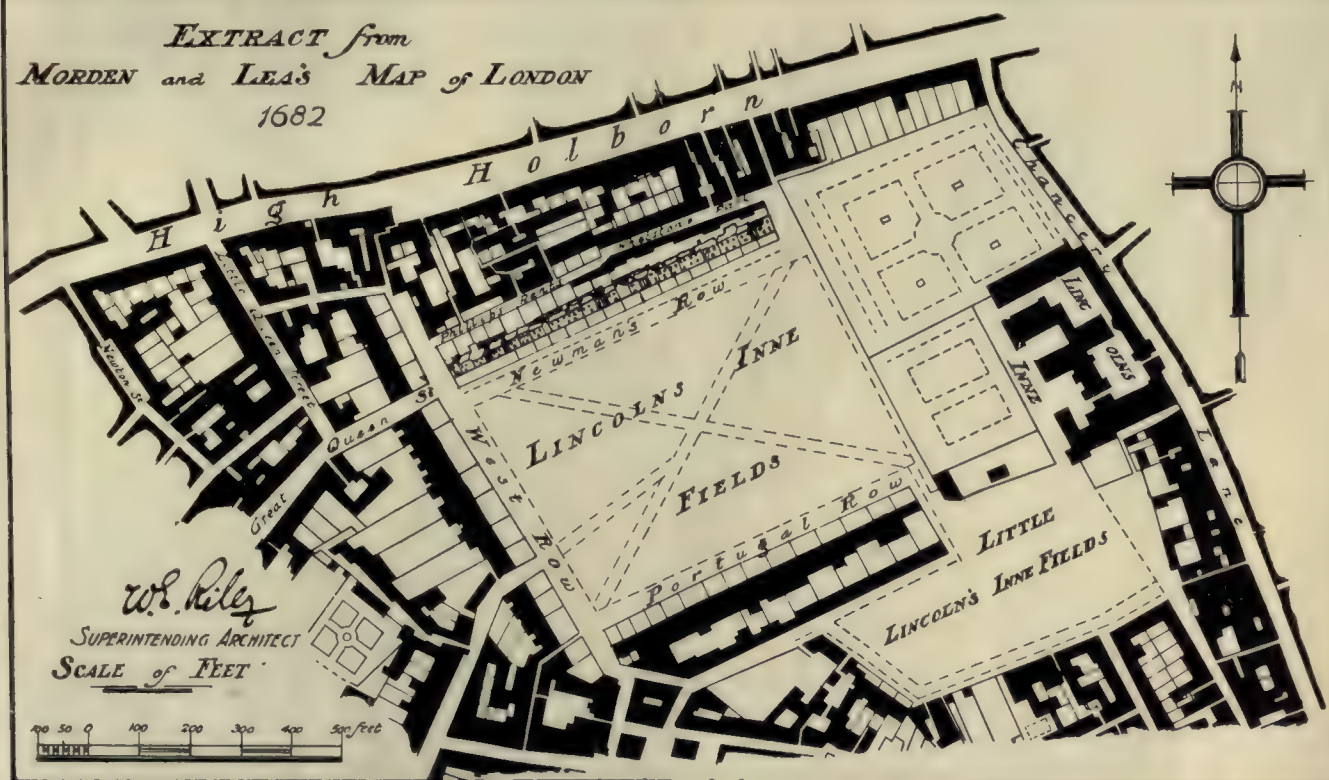 EXTRACT from
MORDEN and LEA'S MAP of LONDON
1682
High Holborn
N
Chancery Lane
Newton St
Little Queen Street
Great Queen St
Newmans Row
West Row
Portugal Row
LINCOLNS INNE
FIELDS
LINC
OLNS
INNE
LITTLE
LINCOLN'S INNE FIELDS
W.E. Riley
SUPERINTENDING ARCHITECT
SCALE of FEET
100 50 0 100 200 300 400 500 feet